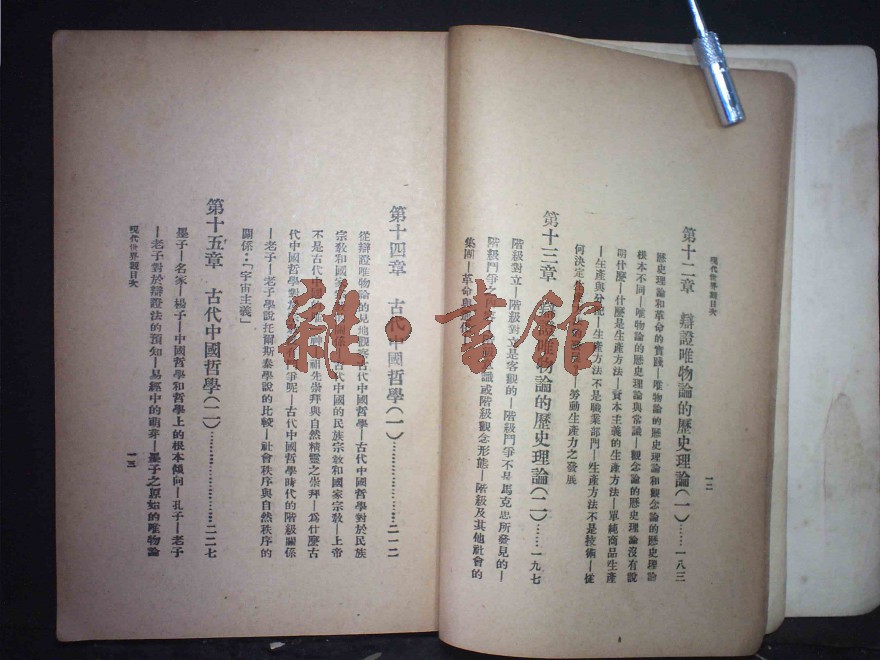 現代世界觀目次
一二
第十二章 辯證唯物論的歷史理論(一)……一八三
歷史理論和革命的實踐—唯物論的歷史理論和觀念論的歷史理論
根本不同—唯物論的歷史理論與常識—觀念論的歷史理論沒有說
明什麼—什麼是生產方法—資本主義的生產方法—單純商品生產
—生產與分配—生產方法不是職業部門—生產方法不是技術—從
何決定 勞動生產力之發展
第十三章 辯證唯物論的歷史理論(二)……一九七
階級對立—階級對立是客觀的—階級鬥爭不是馬克思所發見的—
階級鬥爭之 意識或階級觀念形態—階級及其他社會的
集團—革命與
第十四章 古代中國哲學(一)……………二一二
從辯證唯物論的見地觀察古代中國哲學—古代中國哲學對於民族
宗教和國家 關係—古代中國的民族宗教和國家宗教—上帝
不是古代中國 神—祖先崇拜與自然精靈之崇拜—爲什麼古
代中國哲學對 鬥爭呢—古代中國哲學時代的階級關係
—老子—老子學說托爾斯泰學說的比較—社會秩序與自然秩序的
關係:「宇宙主義」
第十五章 古代中國哲學(二)……………二二七
墨子—名家—楊子—中國哲學和哲學上的根本傾向—孔子—老子
—老子對於辯證法的預知—易經中的萌芽—墨子之原始的唯物論
現代世界觀目次
一三
雜·書館